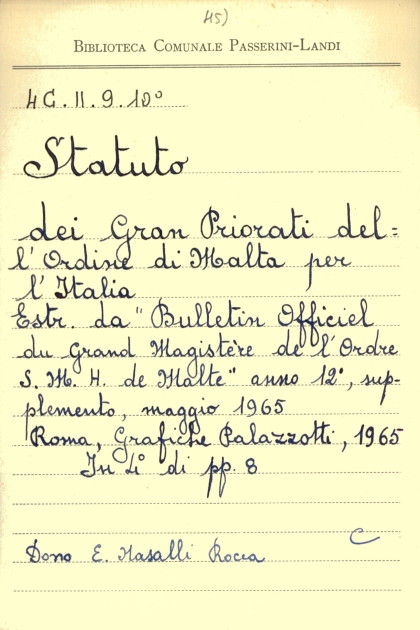 45)
BIBLIOTECA COMUNALE PASSERINI-LANDI
4G.II.9.10°
Statuto
dei Gran Priorati del=
l'Ordine di Malta per
l'Italia
Estr. da "Bulletin Officiel
du Grand Magistère de l'Ordre
S. M. H. de Malte" anno 12°, sup-
plemento, maggio 1965
Roma, Grafiche Palazzotti, 1965
In 4° di pp. 8
C
Dono E. Nasalli Rocca